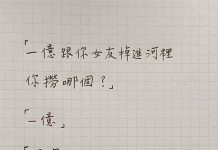 「一億跟你女友掉進河裡
你撈哪個？」
「一億」